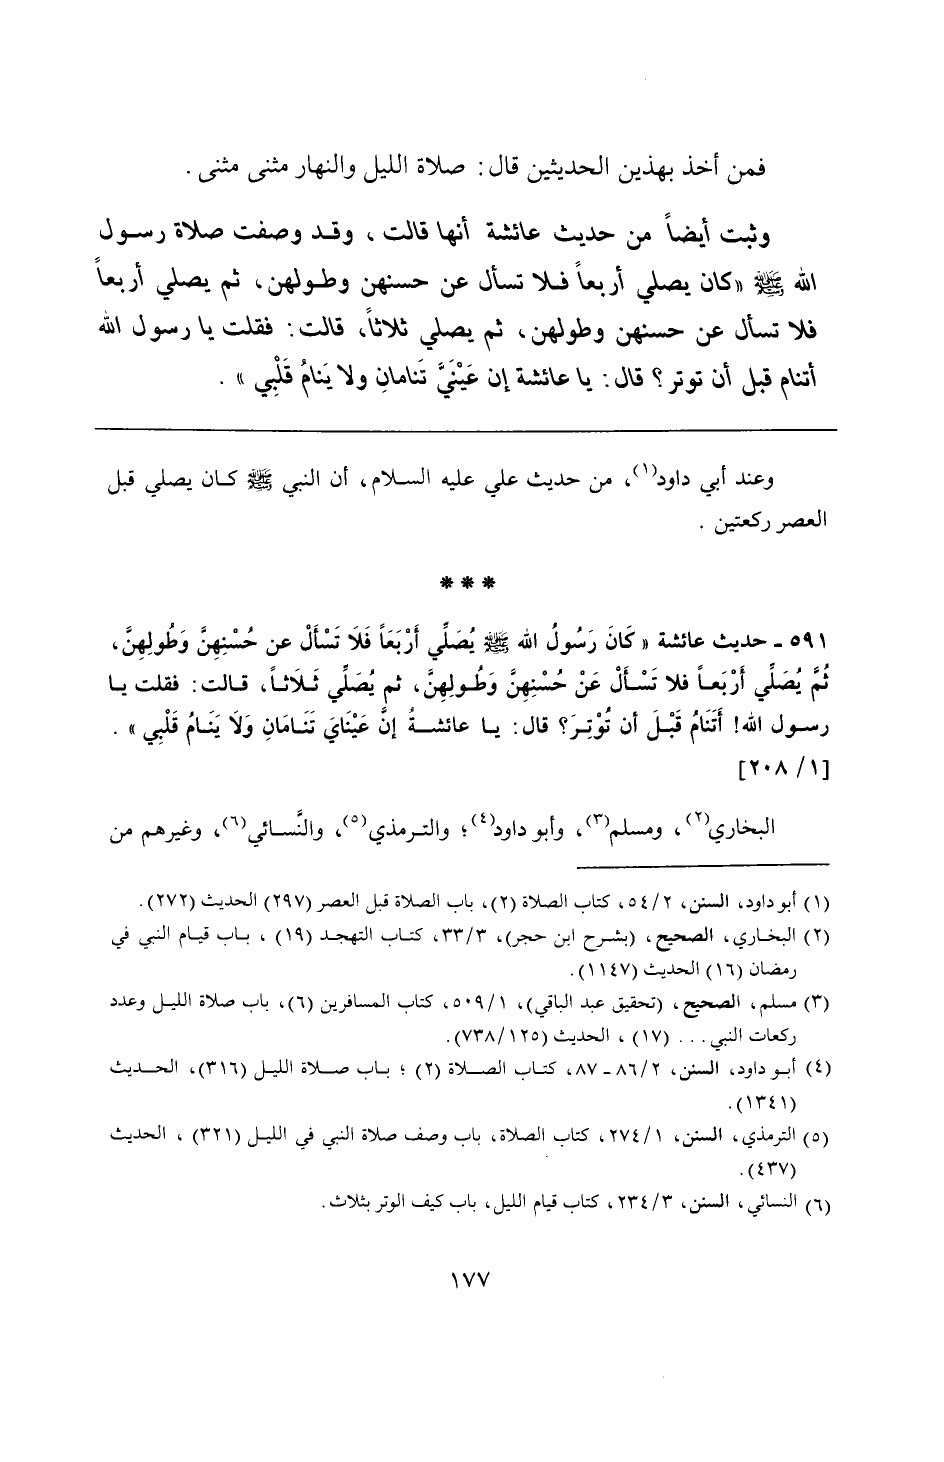 فمن أخذ بهذين الحديثين قال: صلاة الليل والنهار مثنى مثنى.
وثبت أيضاً من حديث عائشة أنها قالت، وقد وصفت صلاة رسول
الله ﷺ «كان يصلي أربعاً فلا تسأل عن حسنهن وطولهن، ثم يصلي أربعاً
فلا تسأل عن حسنهن وطولهن، ثم يصلي ثلاثاً، قالت: فقلت يا رسول الله
أتنام قبل أن توتر؟ قال: يا عائشة إن عَيْنَيَّ تَنامانِ ولا يَنامُ قَلْبِي».
وعند أبي داود(١)، من حديث علي عليه السلام، أن النبي ﷺ كان يصلي قبل
العصر ركعتين.
* * *
٥٩١ - حديث عائشة «كَانَ رَسُولُ الله ﷺ يُصَلِّي أَرْبَعَاً فَلَا تَسْأَلْ عن حُسْنِهِنَّ وَطُولِهِنَّ،
ثُمَّ يُصَلِّي أَرْبَعاً فلا تَسْأَلْ عَنْ حُسْنِهِنَّ وَطُولِهِنَّ، ثم يُصَلِّي ثَلَاثاً، قالت: فقلت يا
رسول الله! أَتَنَامُ قَبْلَ أن تُوْتِرَ؟ قال: يا عائشةُ إنَّ عَيْنَايَ تَنَامَانِ وَلَا يَنَامُ قَلْبِي».
[١/ ٢٠٨]
البخاري(٢)، ومسلم(٣)، وأبو داود(٤)؛ والترمذي(٥)، والنَّسائي(٦)، وغيرهم من
(١) أبو داود، السنن، ٥٤/٢، كتاب الصلاة (٢)، باب الصلاة قبل العصر (٢٩٧) الحديث (٢٧٢).
(٢) البخاري، الصحيح، (بشرح ابن حجر)، ٣٣/٣، كتاب التهجد (١٩)، باب قيام النبي في
رمضان (١٦) الحديث (١١٤٧).
(٣) مسلم، الصحيح، (تحقيق عبد الباقي)، ٥٠٩/١، كتاب المسافرين (٦)، باب صلاة الليل وعدد
ركعات النبي... (١٧)، الحديث (٧٣٨/١٢٥).
(٤) أبو داود، السنن، ٨٦/٢ - ٨٧، كتاب الصلاة (٢)؛ باب صلاة الليل (٣١٦)، الحديث
(١٣٤١).
(٥) الترمذي، السنن، ٢٧٤/١، كتاب الصلاة، باب وصف صلاة النبي في الليل (٣٢١)، الحديث
(٤٣٧).
(٦) النسائي، السنن، ٢٣٤/٣، كتاب قيام الليل، باب كيف الوتر بثلاث.
١٧٧